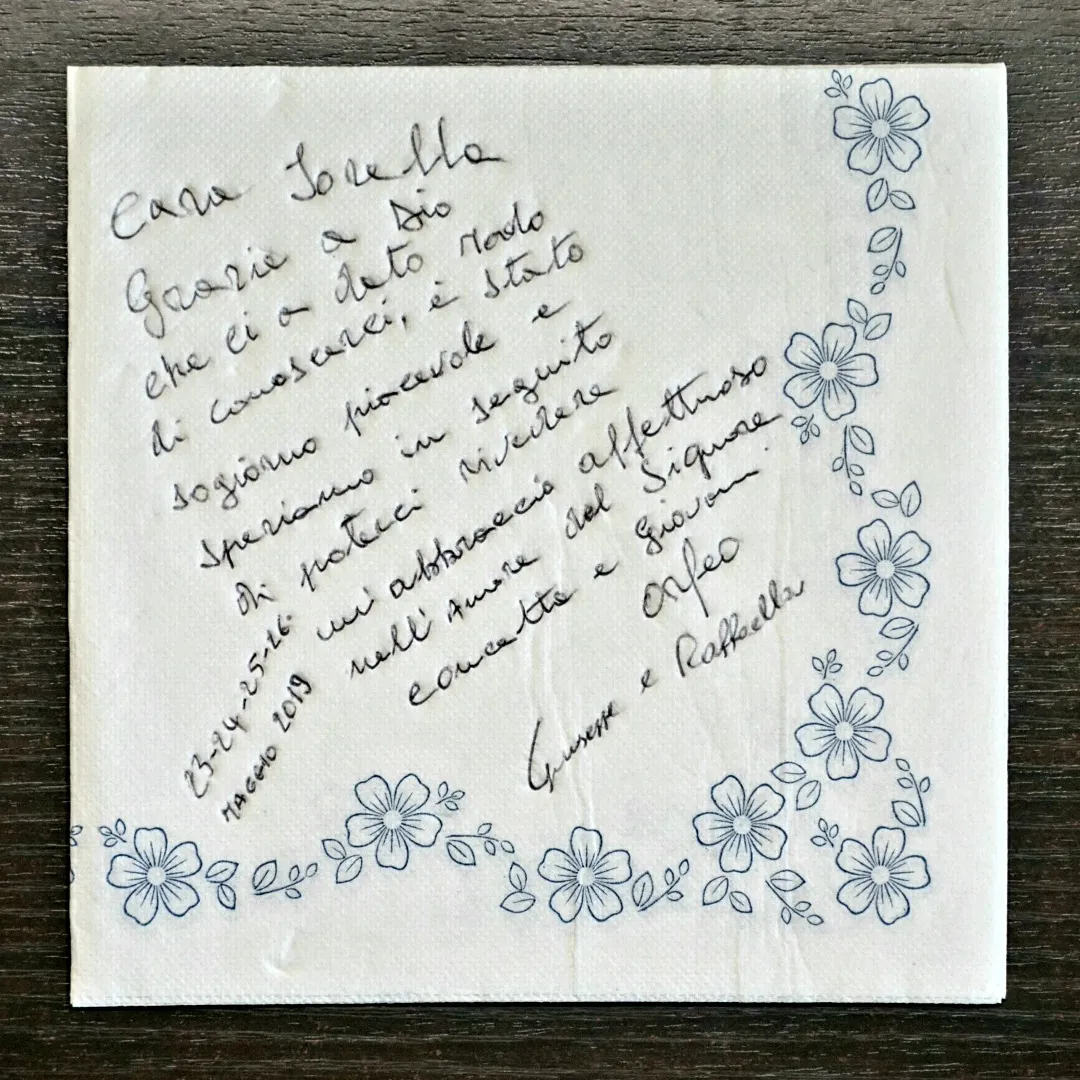 Cara Sorella
Grazie a Dio
che ci a dato modo
di conoscerci, è stato
sogiorno piacevole e
speriamo in seguito
di poterci rivedere
un'abbraccio affettuoso
nell'Amore del Signore
concetta e Giovanni
Orfeo
Giuseppe e Raffaella
23-24-25-26
MAGGIO 2019